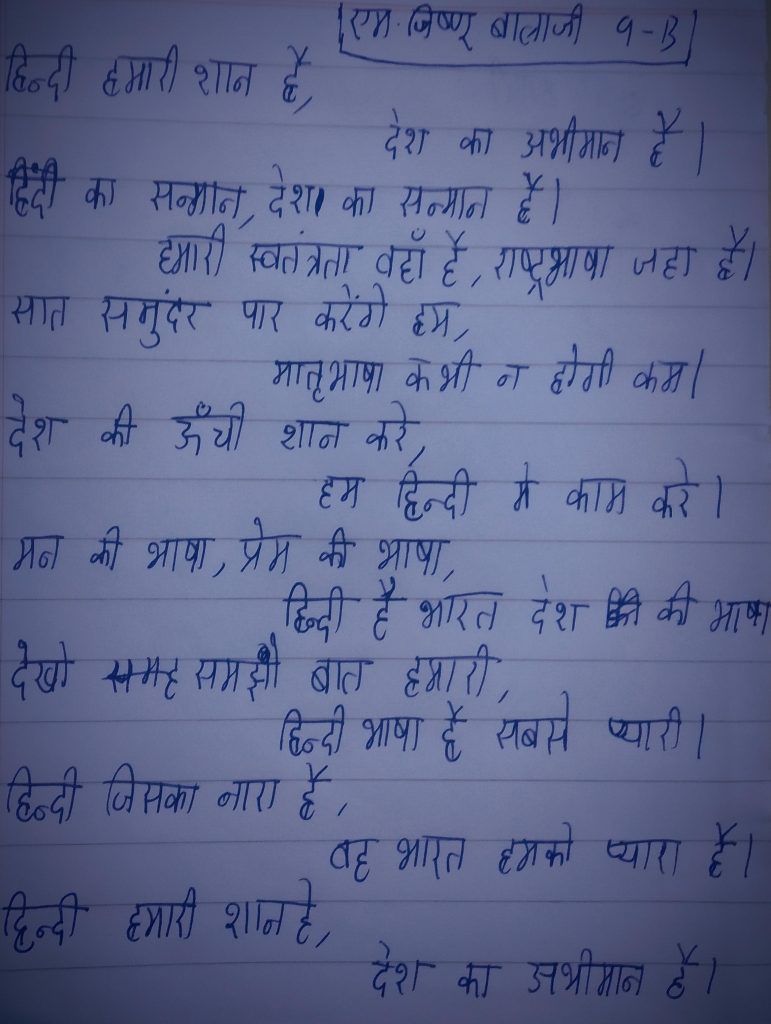 एम. जिष्णु बालाजी 9-B
हिन्दी हमारी शान है,
देश का अभीमान है।
हिंदी का सन्मान, देश का सन्मान है।
हमारी स्वतंत्रता वहाँ है, राष्ट्रभाषा जहा है।
सात समुंदर पार करेंगे हम,
मातृभाषा कभी न होगी कम।
देश की ऊँची शान करे,
हम हिन्दी मे काम करे।
मन की भाषा, प्रेम की भाषा,
हिन्दी है भारत देश की भाषा
देखो समझो बात हमारी,
हिन्दी भाषा है सबसे प्यारी।
हिन्दी जिसका नारा है,
वह भारत हमको प्यारा है।
हिन्दी हमारी शान हे,
देश का अभीमान है।